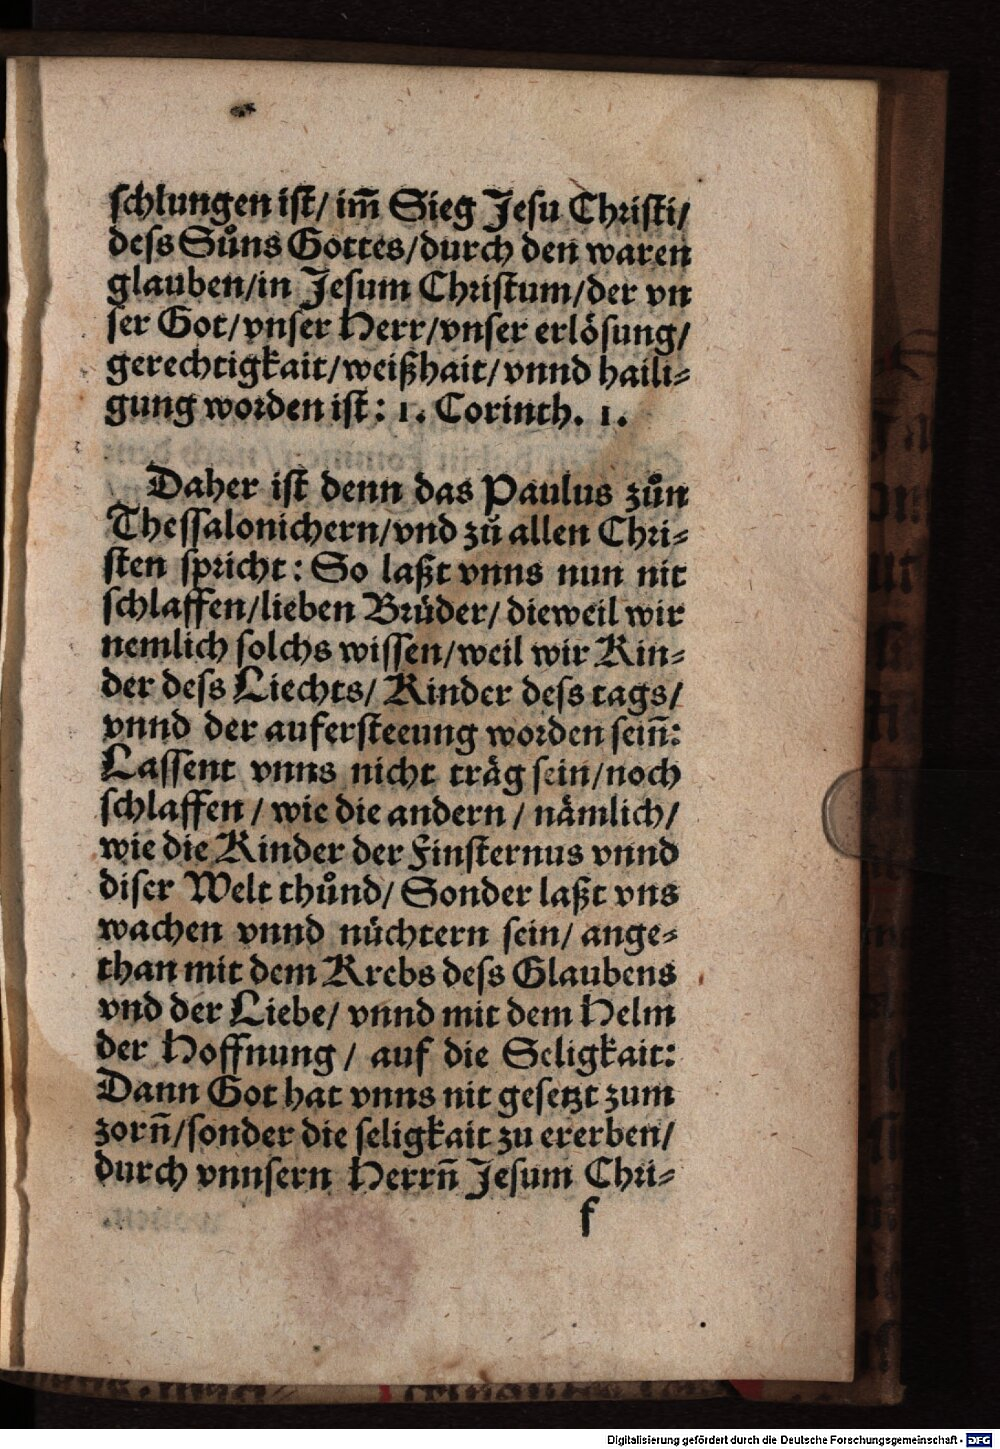 schlungen ist/ im̄ Sieg Jesu Christi/
dess Sůns Gottes/durch den waren
glauben/in Jesum Christum/der vn
ser Got/vnser Herr/vnser erlösung/
gerechtigkait/weißhait/vnnd haili⸗
gung worden ist: 1. Corinth. 1.
Daher ist denn das Paulus zůn
Thessalonichern/vnd zů allen Chri⸗
sten spricht: So laßt vnns nun nit
schlaffen/lieben Brüder/ dieweil wir
nemlich solchs wissen/weil wir Kin⸗
der dess Liechts/ Kinder dess tags/
vnnd der aufersteeung worden sein̄:
Lassent vnns nicht träg sein/noch
schlaffen / wie die andern / nämlich/
wie die Kinder der Finsternus vnnd
diser Welt thůnd/ Sonder laßt vns
wachen vnnd nüchtern sein/ ange⸗
than mit dem Krebs dess Glaubens
vnd der Liebe/ vnnd mit dem Helm
der Hoffnung / auf die Seligkait:
Dann Got hat vnns nit gesetzt zum
zorn̄/sonder die seligkait zu ererben/
durch vnnsern Herrn̄ Jesum Chri⸗
f
Digitalisierung gefördert durch die Deutsche Forschungsgemeinschaft - DFG